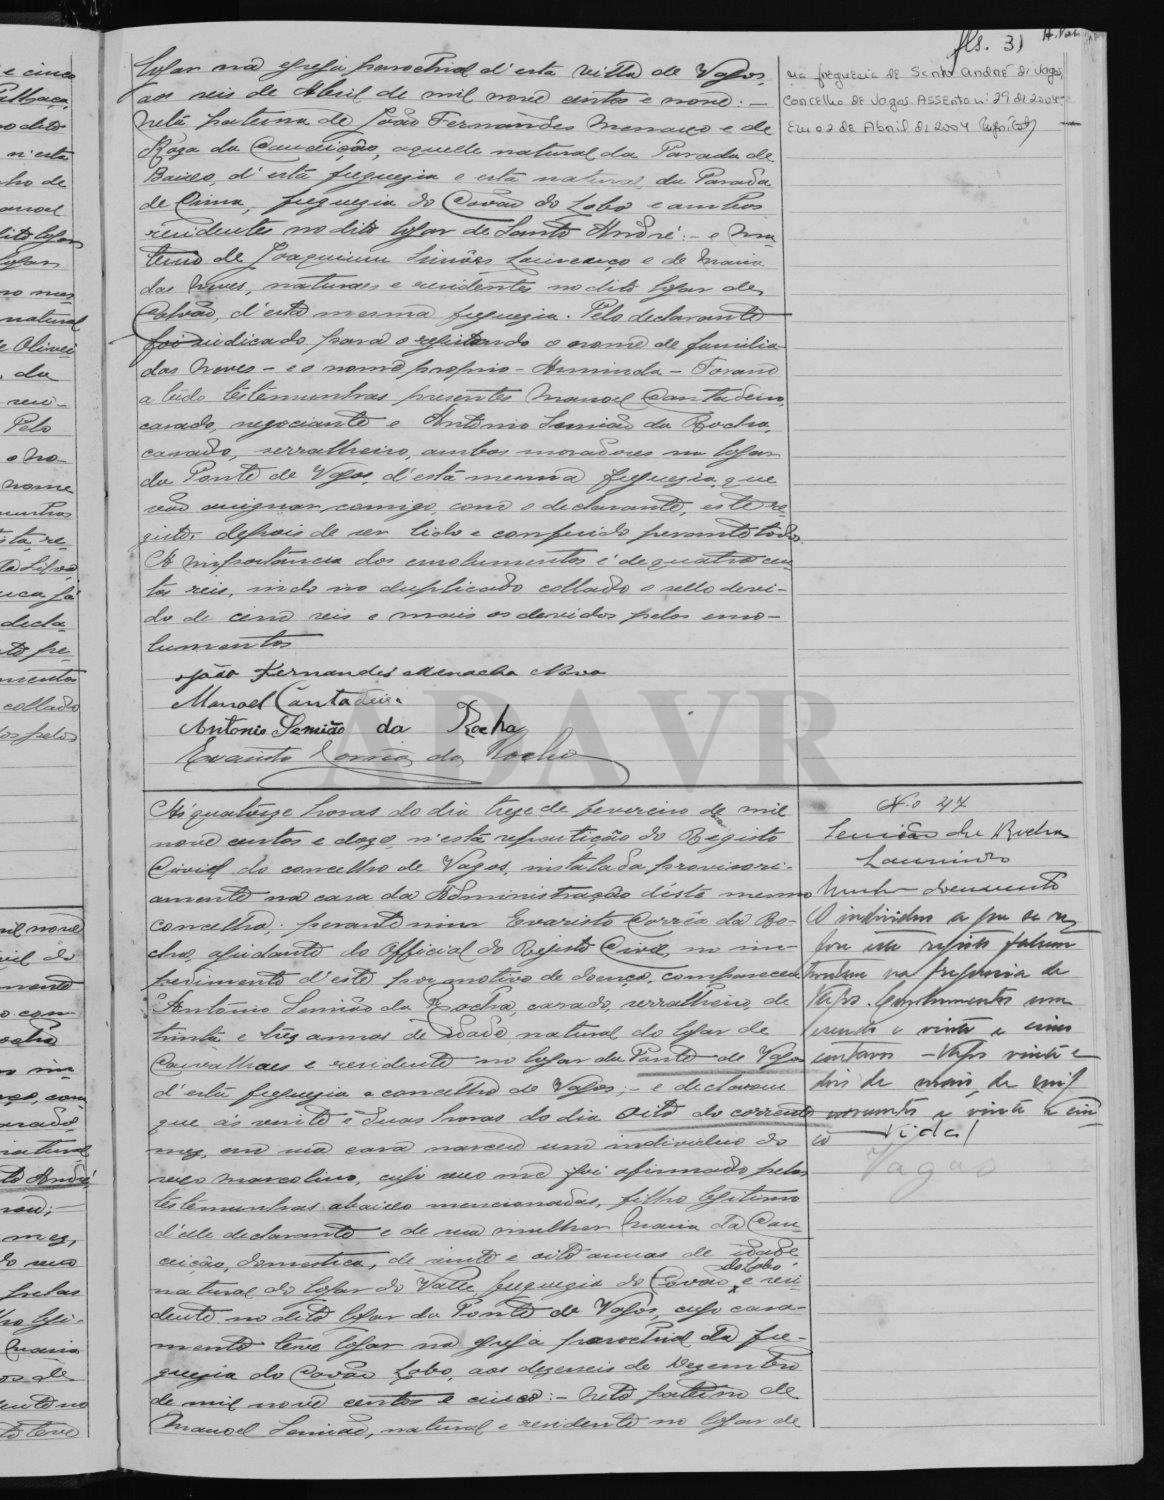 fls. 31
lugar na egreja parochial d'esta villa de Vagos,
aos seis de Abril de mil nove centos e nove: —
Neta paterna de João Fernandes Menacho e de
Roza da Conceição, aquelle natural da Parada de
Baixo, d'esta freguezia e esta natural da Parada
de Cima, freguezia do Covão do Lobo e ambos
residentes no dito lugar de Santo André: - e ma-
terna de Joaquim Simões Lourenço e de Maria
das Neves, naturaes e residentes no dito lugar de
Calvão, d'esta mesma freguezia. Pelo declarante
foi indicado para o registando o nome de familia
das Neves - e o nome proprio - Arminda - Foram
a tudo testemunhas presentes Manoel Cantadeiro,
casado, negociante e Antonio Semião da Rocha,
casado, serralheiro, ambos moradores no lugar
da Ponte de Vagos, d'esta mesma freguezia, que
vão assignar, comigo, com o declarante, este re-
gisto, depois de ser lido e conferido perante todos.
A importancia dos emolumentos é de quatro cen-
tos reis, indo no duplicado collado o sello devi-
do de cem reis e mais os devidos pelos emo-
lumentos
João Fernandes Menacho Novo
Manoel Cantadeiro
Antonio Semião da Rocha
Evaristo Corrêa da Rocha
na freguesia de Santo André de Vagos,
Concelho de Vagos. Assento n.º 29 de 2004 —
Em 02 de Abril de 2004
ADAVR
A's quatorze horas do dia treze de fevereiro de mil
nove centos e doze, n'esta repartição do Registo
Civil do concelho de Vagos, installada provisori-
amente na casa da Administração d'este mesmo
concelho; perante mim Evaristo Corrêa da Ro-
cha, ajudante do Official do Registo Civil, no im-
pedimento d'este por motivo de doença, compareceu
Antonio Semião da Rocha, casado, serralheiro, de
trinta e tres annos de idade, natural do lugar de
Carvalhaes e residente no lugar da Ponte de Vagos
d'esta freguezia e concelho de Vagos; - e declarou
que ás vinte e duas horas do dia oito do corrente
mez, em sua casa nasceu um individuo do
sexo masculino, cujo sexo me foi afirmado pelas
testemunhas abaixo mencionadas, filho legitimo
d'elle declarante e de sua mulher Maria da Con-
ceição, domestica, de vinte e oito annos de idade
natural do lugar do Valle, freguezia do Covão do Lobo e resi-
dente no dito lugar da Ponte de Vagos, cujo casa-
mento teve lugar na egreja parochial da fre-
guezia do Covão Lobo, aos dezeseis de Dezembro
de mil nove centos e cinco: - Neto paterno de
Manoel Semião, natural e residente no lugar de
N.o 47
Semião da Rocha
Laurindo
Nenhum documento
O individuo a que se re-
fere este registo
na freguesia de
Vagos. Emolumentos um
escudo e vinte e cinco
centavos - Vagos vinte e
dois de maio de mil
novecentos e vinte e cin-
co — Vidal
Vagos